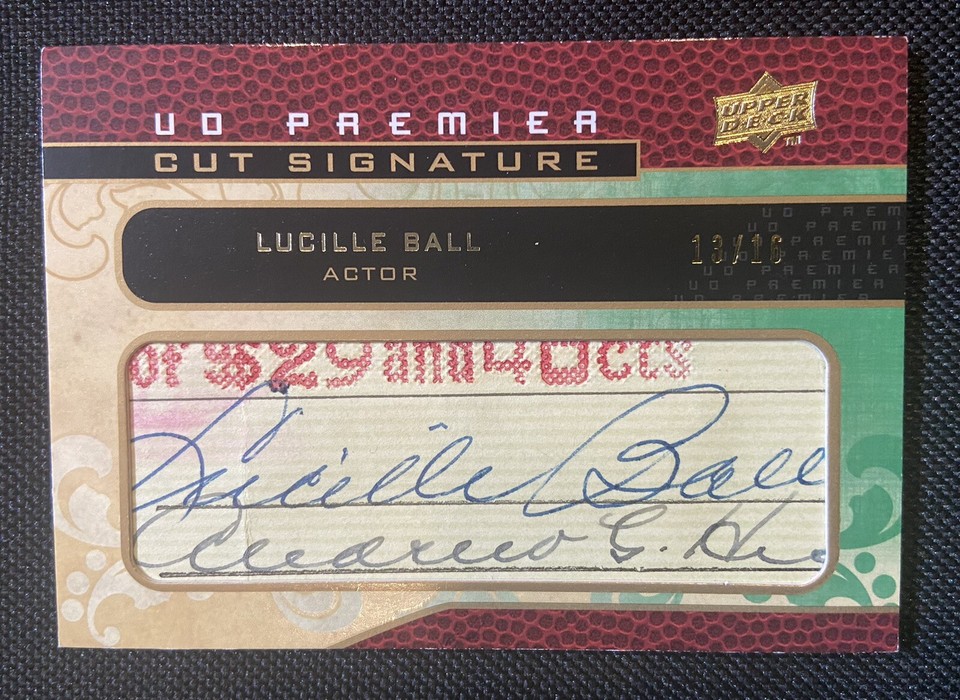 UD PREMIER
UPPER
DECK
TM
CUT SIGNATURE
LUCILLE BALL
ACTOR
13/16
UD PREM
UD PREMI
PREMIE
UD PREMIER
UD PREMIER
UD PREMIER
of $29 and 40 cts
Lucille Ball
G.